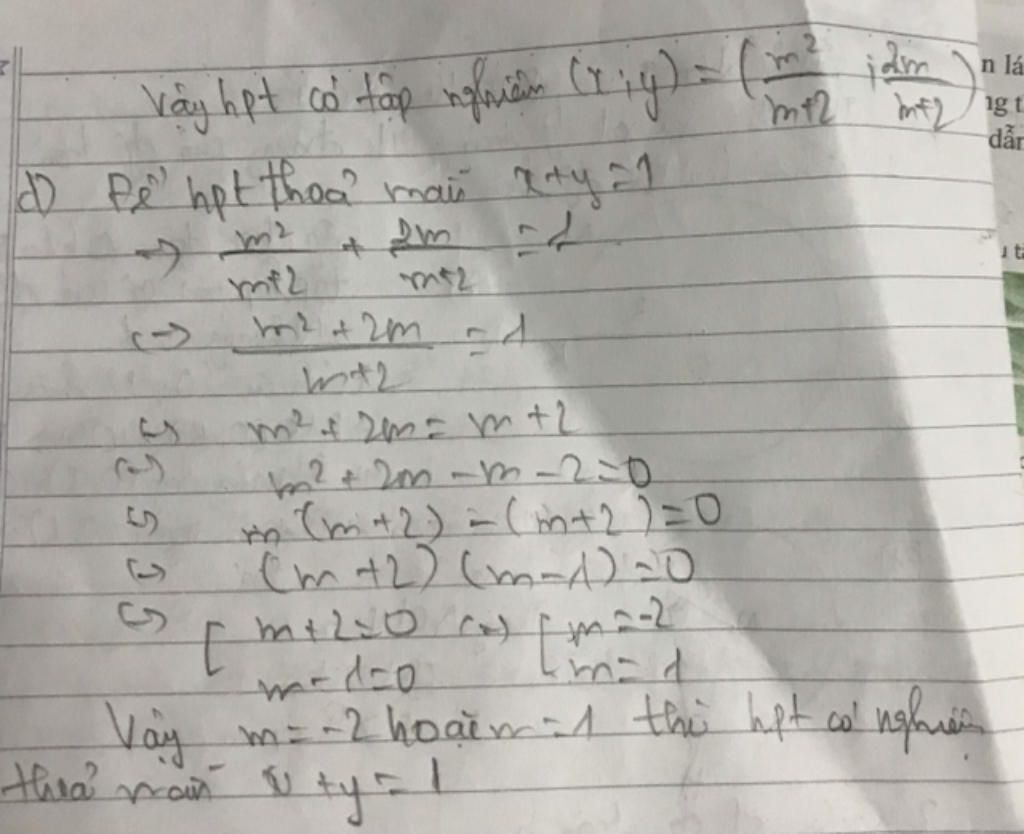 Vậy hpt có tập nghiệm (x;y) = (m²/m+2 ; 2m/m+2)
d) Để hpt thoả mãn x+y=1
→ m²/m+2 + 2m/m+2 = 1
(→) m² + 2m / m+2 = 1
(→) m² + 2m = m + 2
(→) m² + 2m - m - 2 = 0
(→) m(m+2) - (m+2) = 0
(→) (m+2)(m-1) = 0
(→) [ m+2=0 (→) [ m=-2
m-1=0 m=1
Vậy m=-2 hoặc m=1 thì hpt có nghiệm
thoả mãn x+y=1
n lá
ng t
dẫn